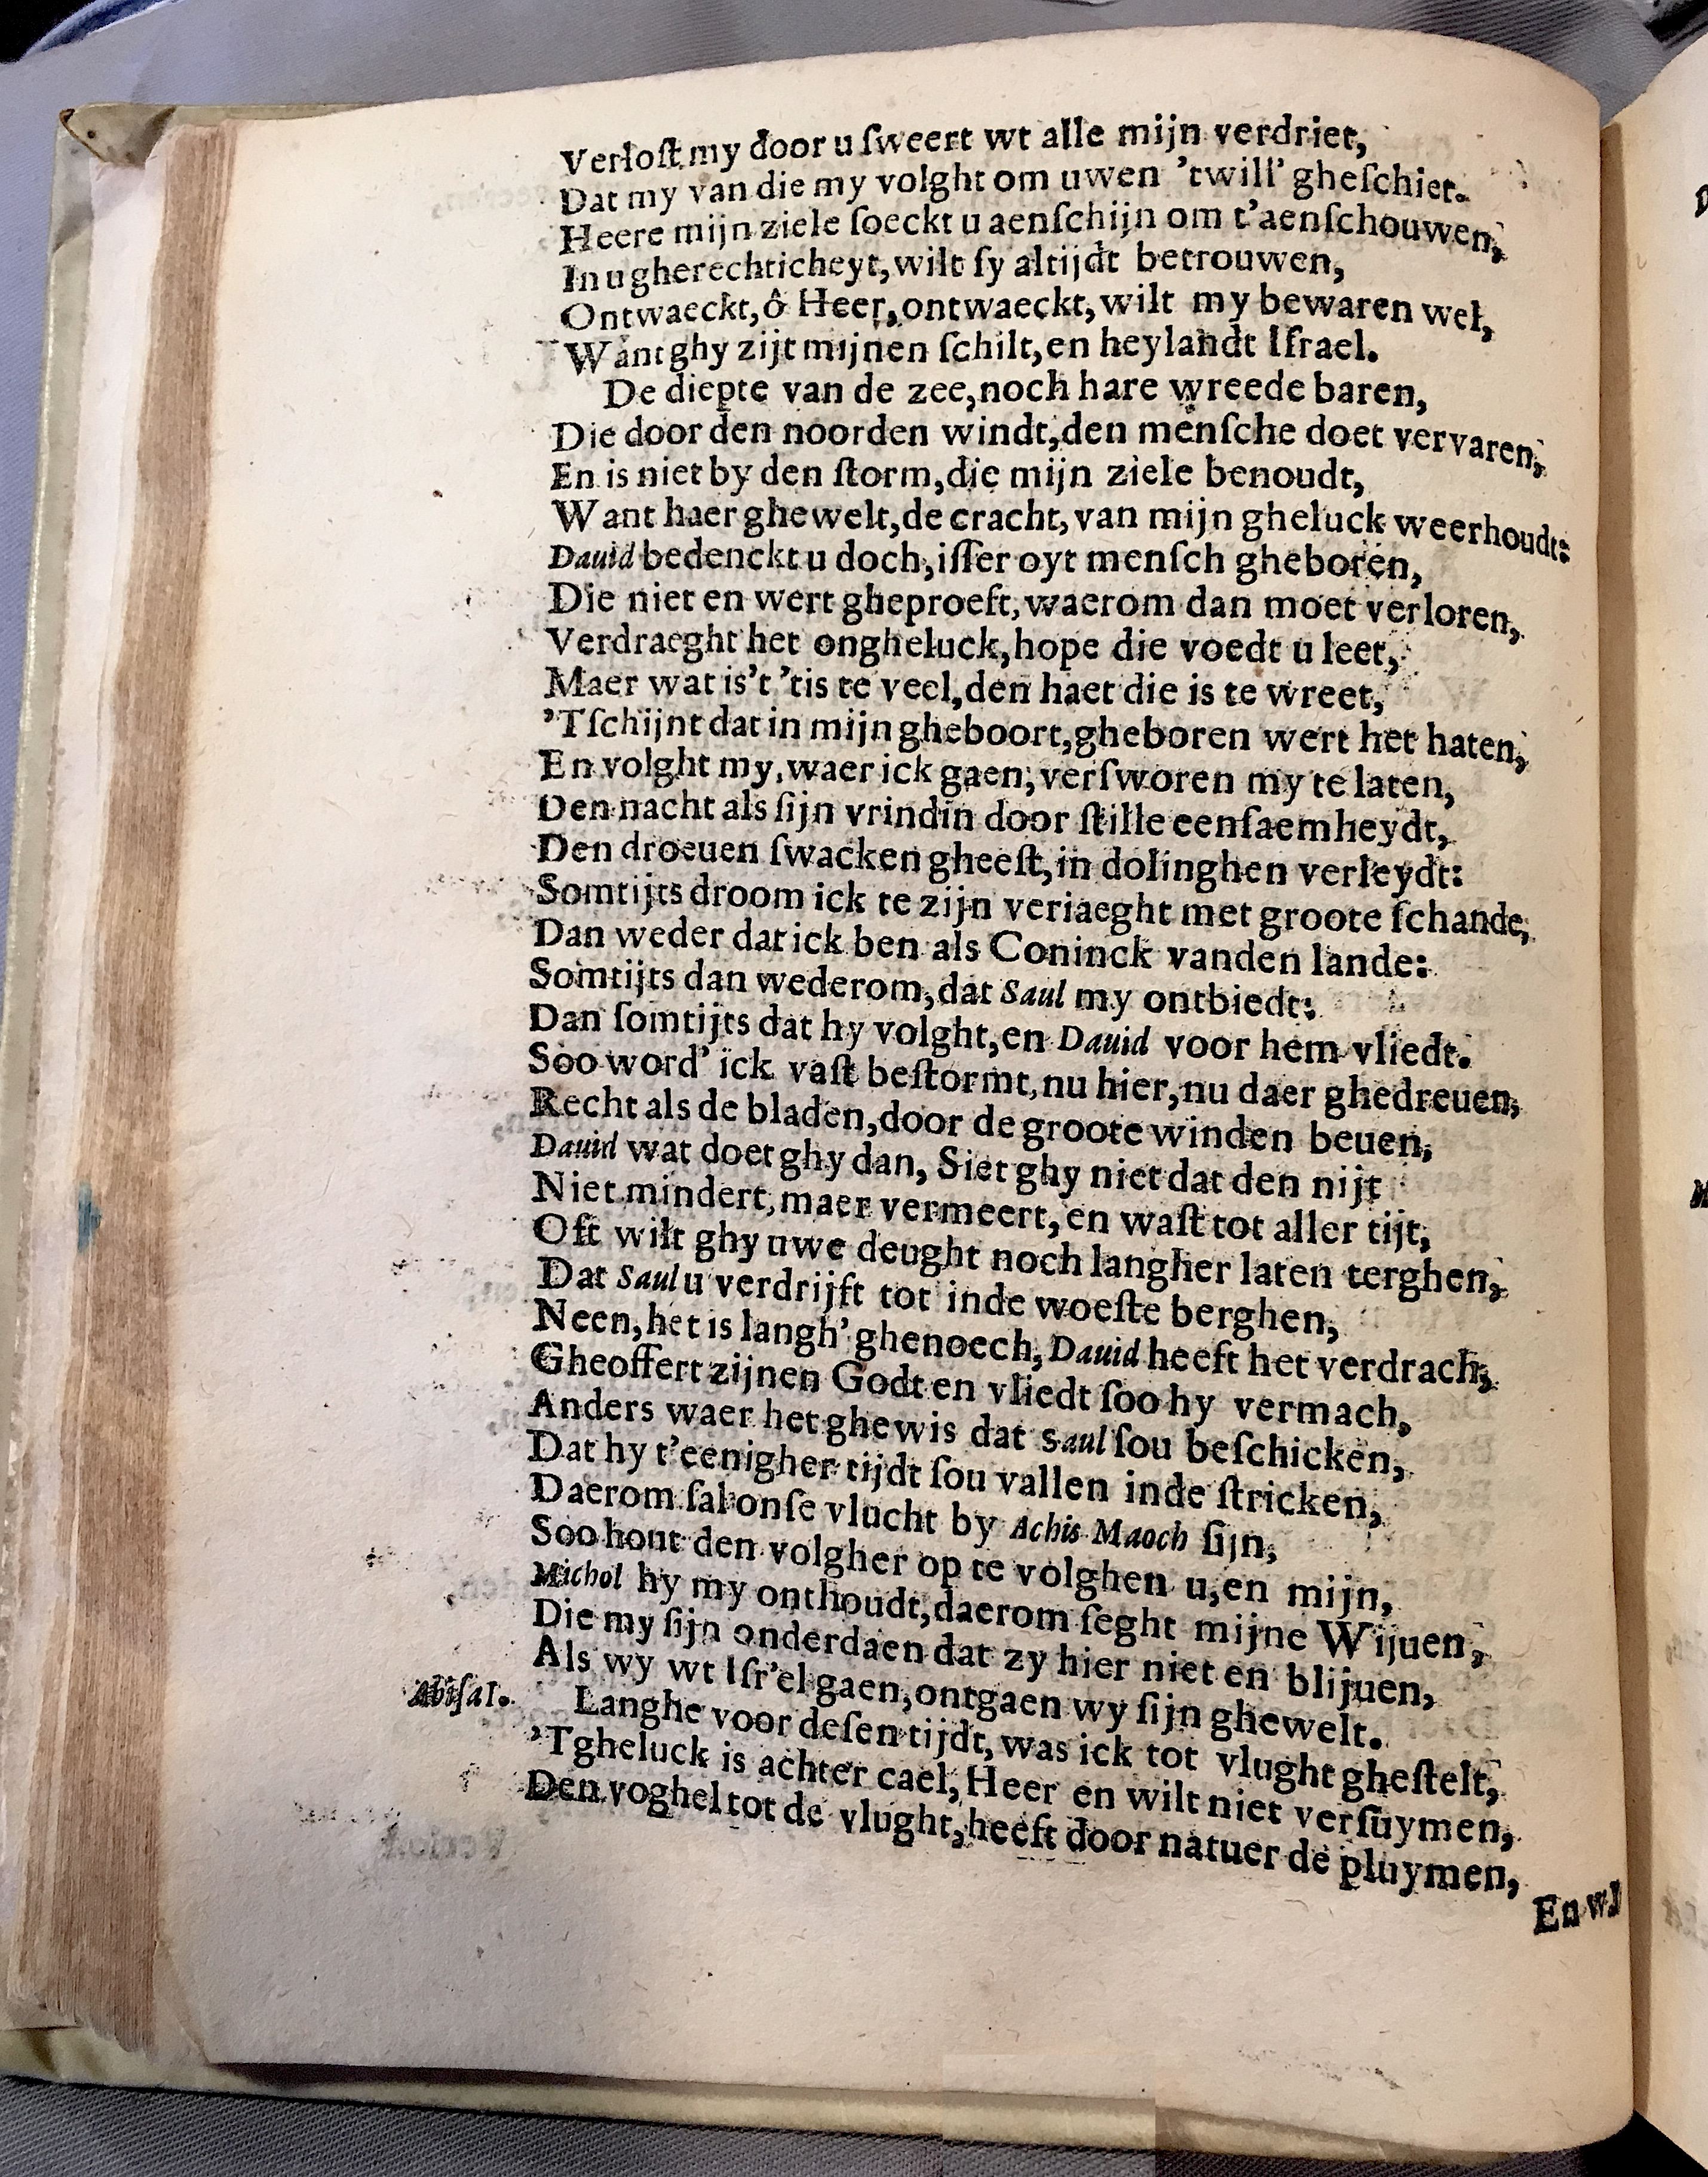 Verlost my door u sweert wt alle mijn verdriet,
Dat my van die my volght om uwen 'twill' gheschiet.
Heere mijn ziele soeckt u aenschijn om t'aenschouwen,
In u gherechticheyt, wilt sy altijdt betrouwen,
Ontwaeckt, ô Heer, ontwaeckt, wilt my bewaren wel,
Want ghy zijt mijnen schilt, en heylandt Israel.
De diepte van de zee, noch hare wreede baren,
Die door den noorden windt, den mensche doet vervaren,
En is niet by den storm, die mijn ziele benoudt,
Want haer ghewelt, de cracht, van mijn gheluck weerhoudt:
Dauid bedenckt u doch, isser oyt mensch gheboren,
Die niet en wert gheproeft, waerom dan moet verloren,
Verdraeght het ongheluck, hope die voedt u leet,
Maer wat is't 'tis te veel, den haet die is te wreet,
'Tschijnt dat in mijn gheboort, gheboren wert het haten,
En volght my, waer ick gaen, versworen my te laten,
Den nacht als sijn vrindin door stille eensaemheydt,
Den droeuen swacken gheest, in dolinghen verleydt:
Somtijts droom ick te zijn veriaeght met groote schande,
Dan weder dat ick ben als Coninck vanden lande:
Somtijts dan wederom, dat Saul my ontbiedt:
Dan somtijts dat hy volght, en Dauid voor hem vliedt.
Soo word' ick vast bestormt, nu hier, nu daer ghedreuen,
Recht als de bladen, door de groote winden beuen,
Dauid wat doet ghy dan, Siet ghy niet dat den nijt
Niet mindert, maer vermeert, en wast tot aller tijt,
Oft wilt ghy uwe deught noch langher laten terghen,
Dat Saul u verdrijft tot inde woeste berghen,
Neen, het is langh' ghenoech, Dauid heeft het verdrach,
Gheoffert zijnen Godt en vliedt soo hy vermach,
Anders waer het ghewis dat Saul sou beschicken,
Dat hy t'eenigher tijdt sou vallen inde stricken,
Daerom sal onse vlucht by Achis Maoch sijn,
Soo hout den volgher op te volghen u, en mijn,
Michol hy my onthoudt, daerom seght mijne Wijuen,
Die my sijn onderdaen dat zy hier niet en blijuen,
Als wy wt Isr'el gaen, ontgaen wy sijn ghewelt.
Abisai. Langhe voor desen tijdt, was ick tot vlught ghestelt,
'Tgheluck is achter cael, Heer en wilt niet versuymen,
Den voghel tot de vlught, heeft door natuer de pluymen,
En wy